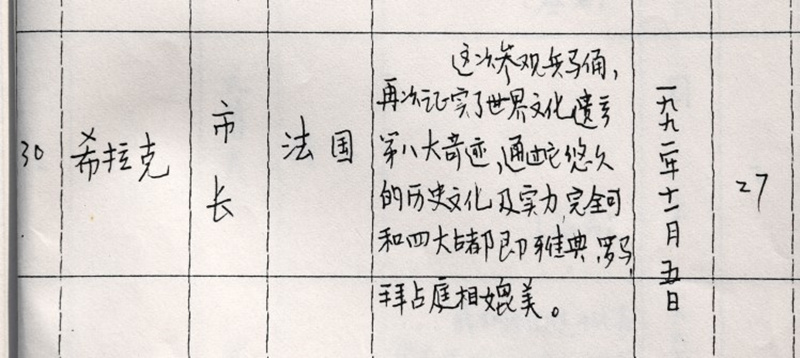 30
希拉克
市长
法国
这次参观兵马俑,
再次证实了世界文化遗产
第八大奇迹,通过它悠久
的历史文化及实力,完全可
和四大古都即雅典,罗马
拜占庭相媲美。
一九九二年十一月五日
27